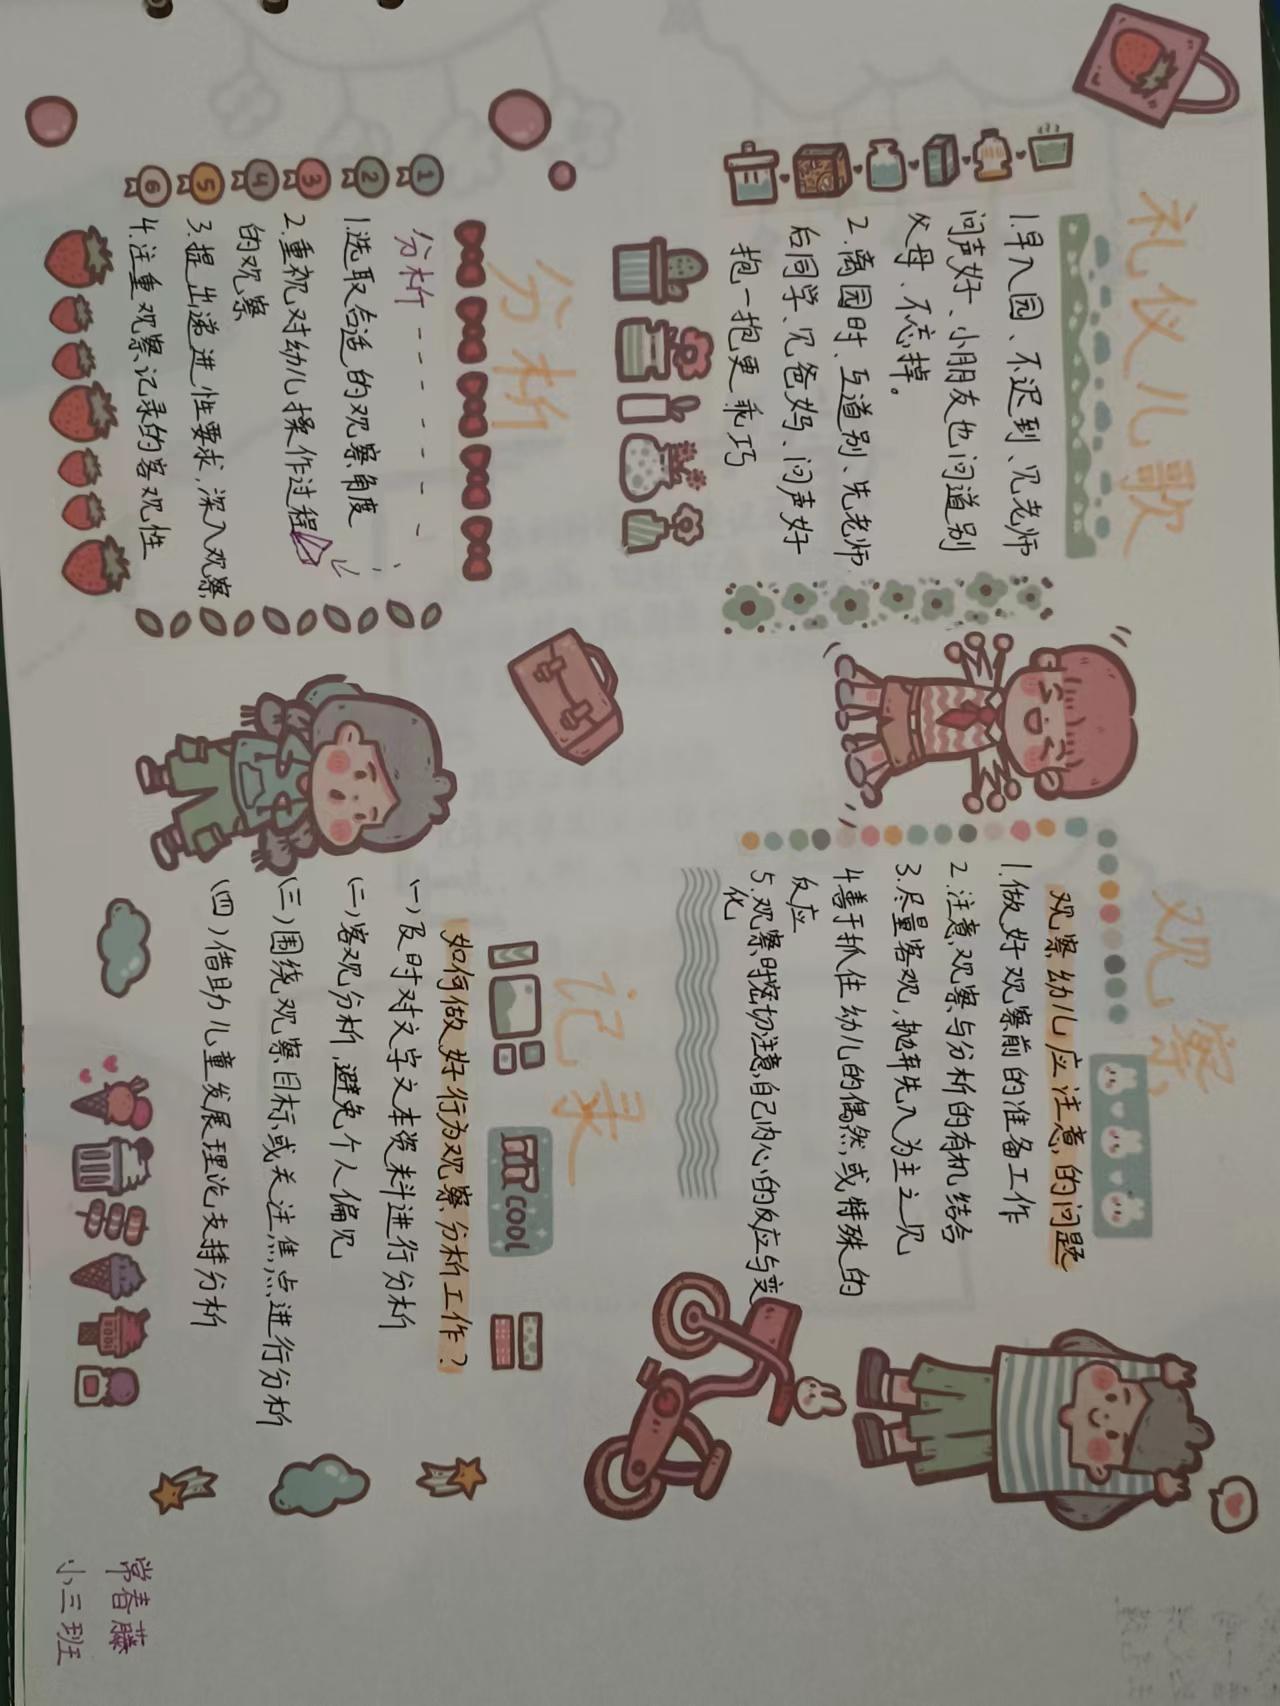 礼仪儿歌
1.早入园、不迟到、见老师
问声好、小朋友也问道别
父母、不忘掉。
2.离园时、互道别、先老师
后同学、见爸妈、问声好
抱一抱更乖巧
观察
观察幼儿应注意的问题
1.做好观察前的准备工作
2.注意观察与分析的有机结合
3.尽量客观,抛弃先入为主之见
4善于抓住幼儿的偶然或特殊的
反应
5.观察时密切注意自己内心的反应与变
化
分析
1
2
3
4
5
6
分析------
1.选取合适的观察角度
2.重视对幼儿操作过程
的观察
3.提出递进性要求,深入观察
4.注重观察记录的客观性
记录
COOL
如何做好行为观察分析工作?
(一)及时对文字文本资料进行分析
(二)客观分析,避免个人偏见
(三)围绕观察目标或关注焦点进行分析
(四)借助儿童发展理论支持分析
常春藤
小三班